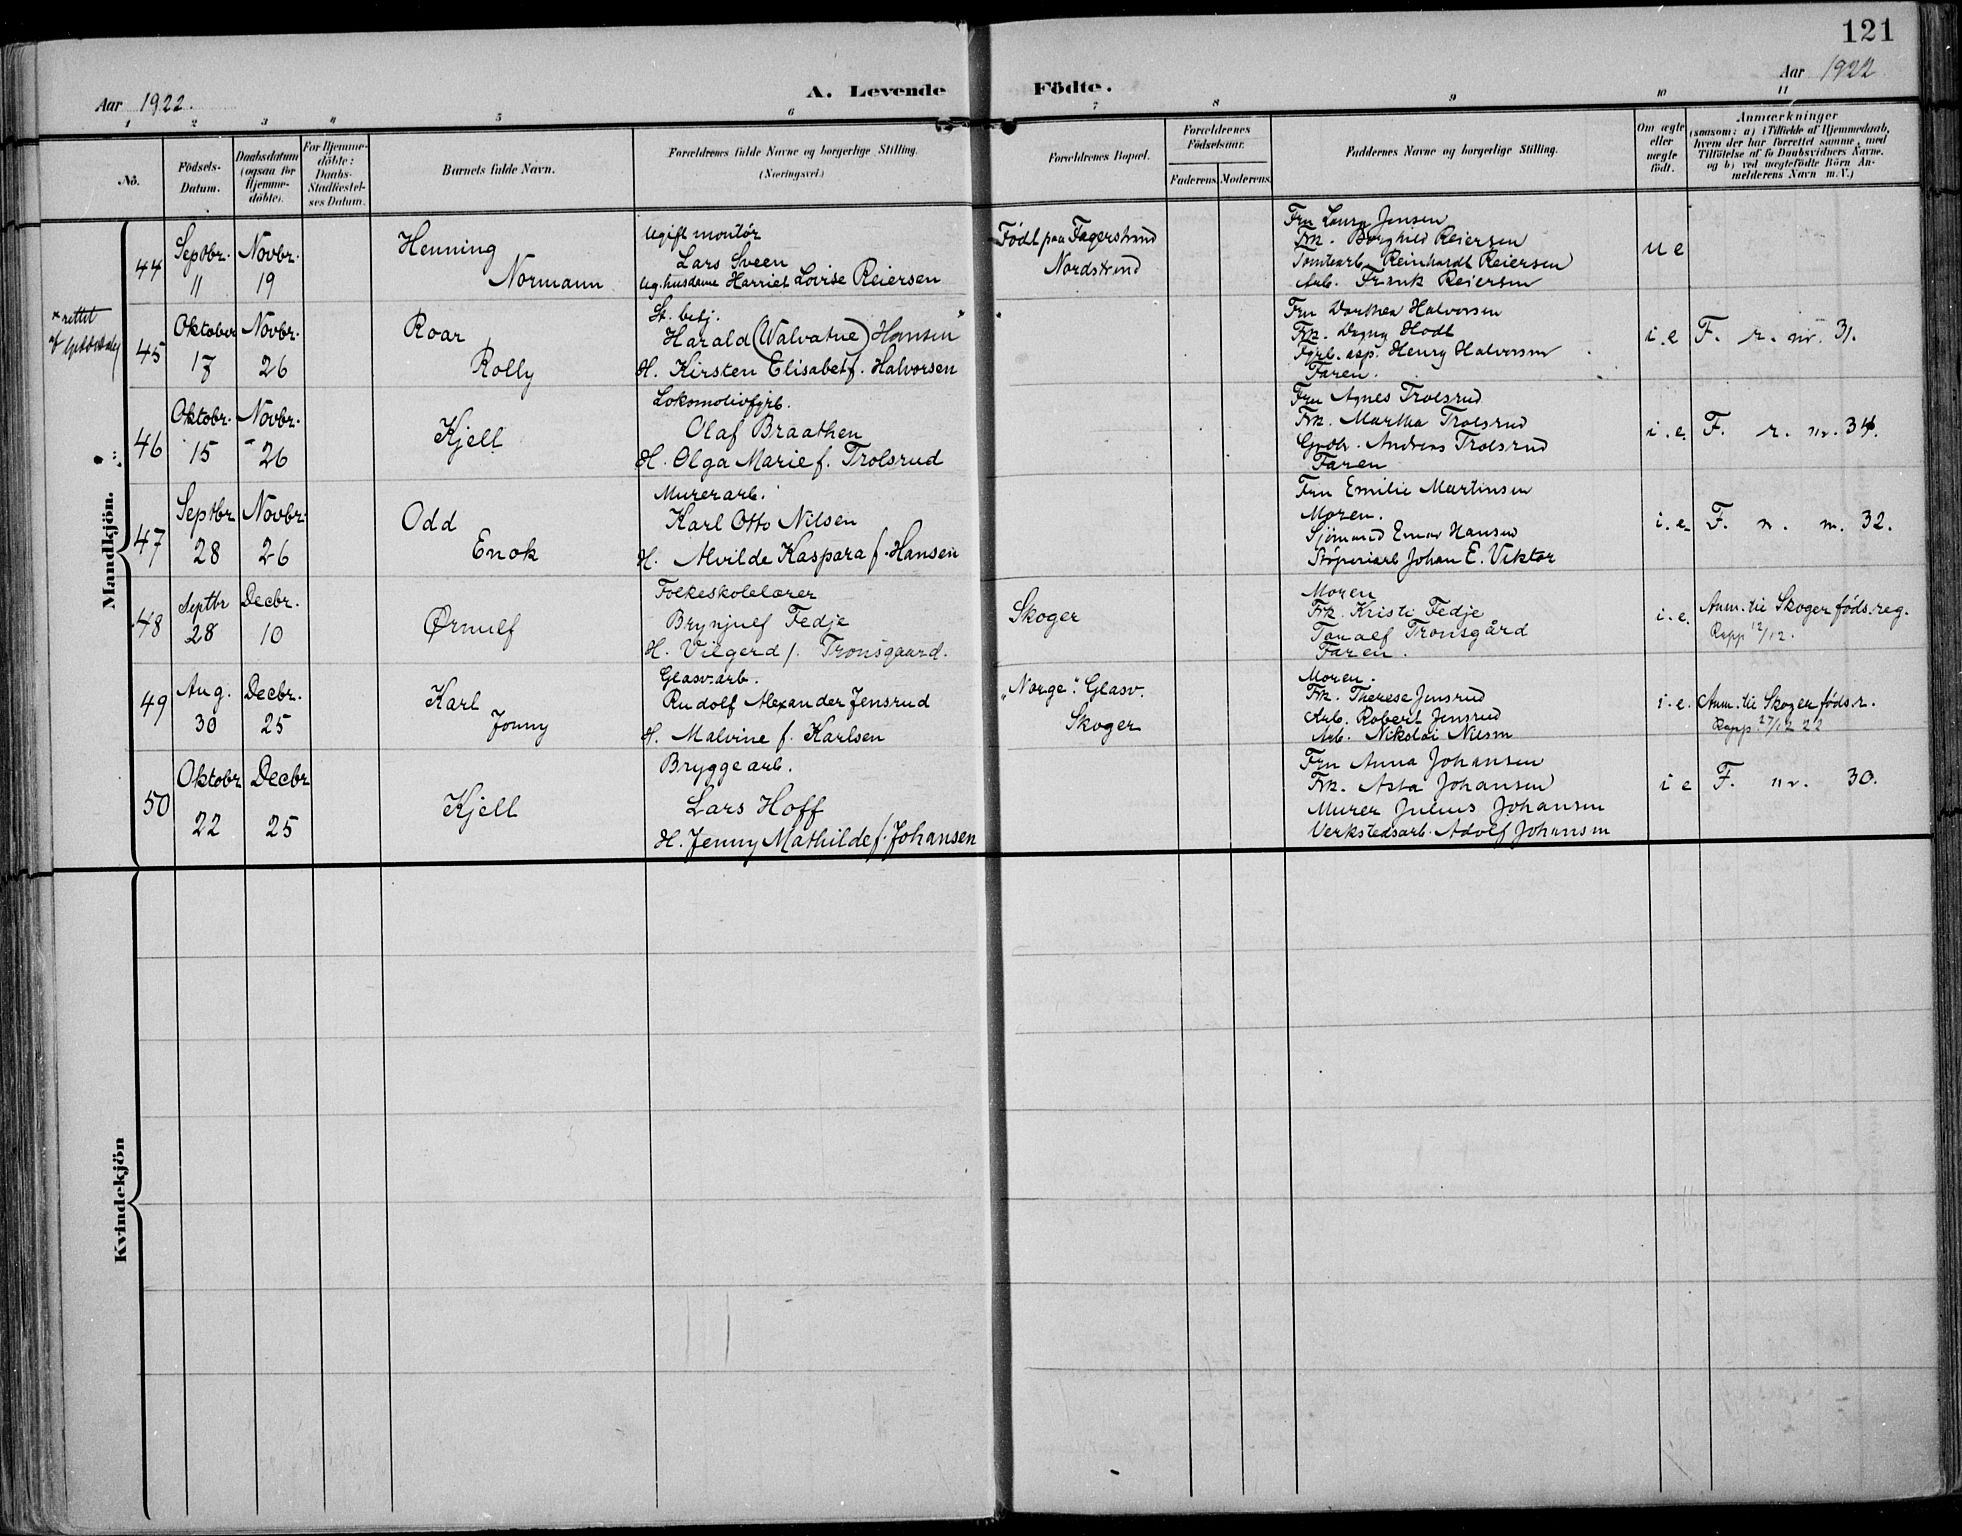 121
Aar 1922.
A. Levende Födte.
Aar 1922
1 2 3 4 5 6 7 8 9 10 11
No.
Födsels-Datum.
Daabsdatum (ogsaa for Hjemme-döbte).
For Hjemme-döbte: Daabs-Stadfæstel-ses Datum.
Barnets fulde Navn.
Forældrenes fulde Navne og borgerlige Stilling. (Næringsvei.)
Forældrenes Bopæl.
Forældrenes Födselsaar.
Faderens. Moderens.
Faddernes Navne og borgerlige Stilling.
Om ægte eller uægte födt.
Anmærkninger
(saasom: a) i Tilfælde af Hjemmedaab,
hvem der har forrettet samme, med
Tilföielse af to Daabsvidners Navne.
og b) ved uægtefödte Börn An-
melderens Navn m. V.)
Mandkjön.
44
Septbr. 11
Novbr. 19
Henning
Normann
Ugift montör
Lars Sveen
ug. husdame Harriet Lovise Reiersen
Födt paa Fagerstrand
Nordstrand
Fru Laura Jensen
Frk. Borghild Reiersen
Tomtearb. Reinhardt Reiersen
Arb. Frank Reiersen
u e
* rettet
45
Oktober 17
Novbr. 26
Roar
Rolly
St. betj.
Harald (Walvatne) Hansen
H. Kirsten Elisabet f. Halvorsen
Fru Dorthea Halvorsen
Frk. Dagny Hodt
Fyrb. asp. Henry Halvorsen
Faren.
i. e
F. r. nr. 31.
46
Oktobr. 15
Novbr. 26
Kjell
Lokomotivfyrb.
Olaf Braathen
H. Olga Marie f. Trolsrud
Fru Agnes Trolsrud
Frk. Martha Trolsrud
Grdbr. Andreas Trolsrud
Faren
i. e.
F. r. nr. 34.
47
Septbr 28
Novbr. 26
Odd
Enok
Murerarb.
Karl Otto Nilsen
H. Alvilde Kaspara f. Hansen
Fru Emilie Martinsen
Moren.
Sjömand Einar Hansen
Støperiarb Johan E. Viktor
i. e.
F. n. nr. 32.
48
Septbr 28
Decbr. 10
Ørnulf
Folkeskolelærer
Brynjulf Fedje
H. Vilgerd f. Tronsgaard.
Skoger
Moren
Frk. Kristi Fedje
Tonalf Tronsgård
Faren.
i. e.
Anm. til Skoger föds. reg.
Rapp 12/12.
49
Aug. 30
Decbr. 25
Karl
Jonny
Glasv.arb.
Rudolf Alexander Jensrud
H. Malvine f. Karlsen
"Norge". Glasv.
Skoger
Moren.
Frk. Therese Jensrud
Arb. Robert Jensrud
Arb. Nikolai Nilsen
i. e.
Anm. til Skoger föds. r.
Rapp. 27/12 22
50
Oktobr 22
Decbr 25
Kjell
Bryggearb.
Lars Hoff
H. Jenny Mathilde f. Johansen
Fru Anna Johansen
Frk. Asta Johansen
Murer Julius Johansen
Verkstedsarb. Adolf Johansen
i e
F. nr. 30.
Kvindekjön